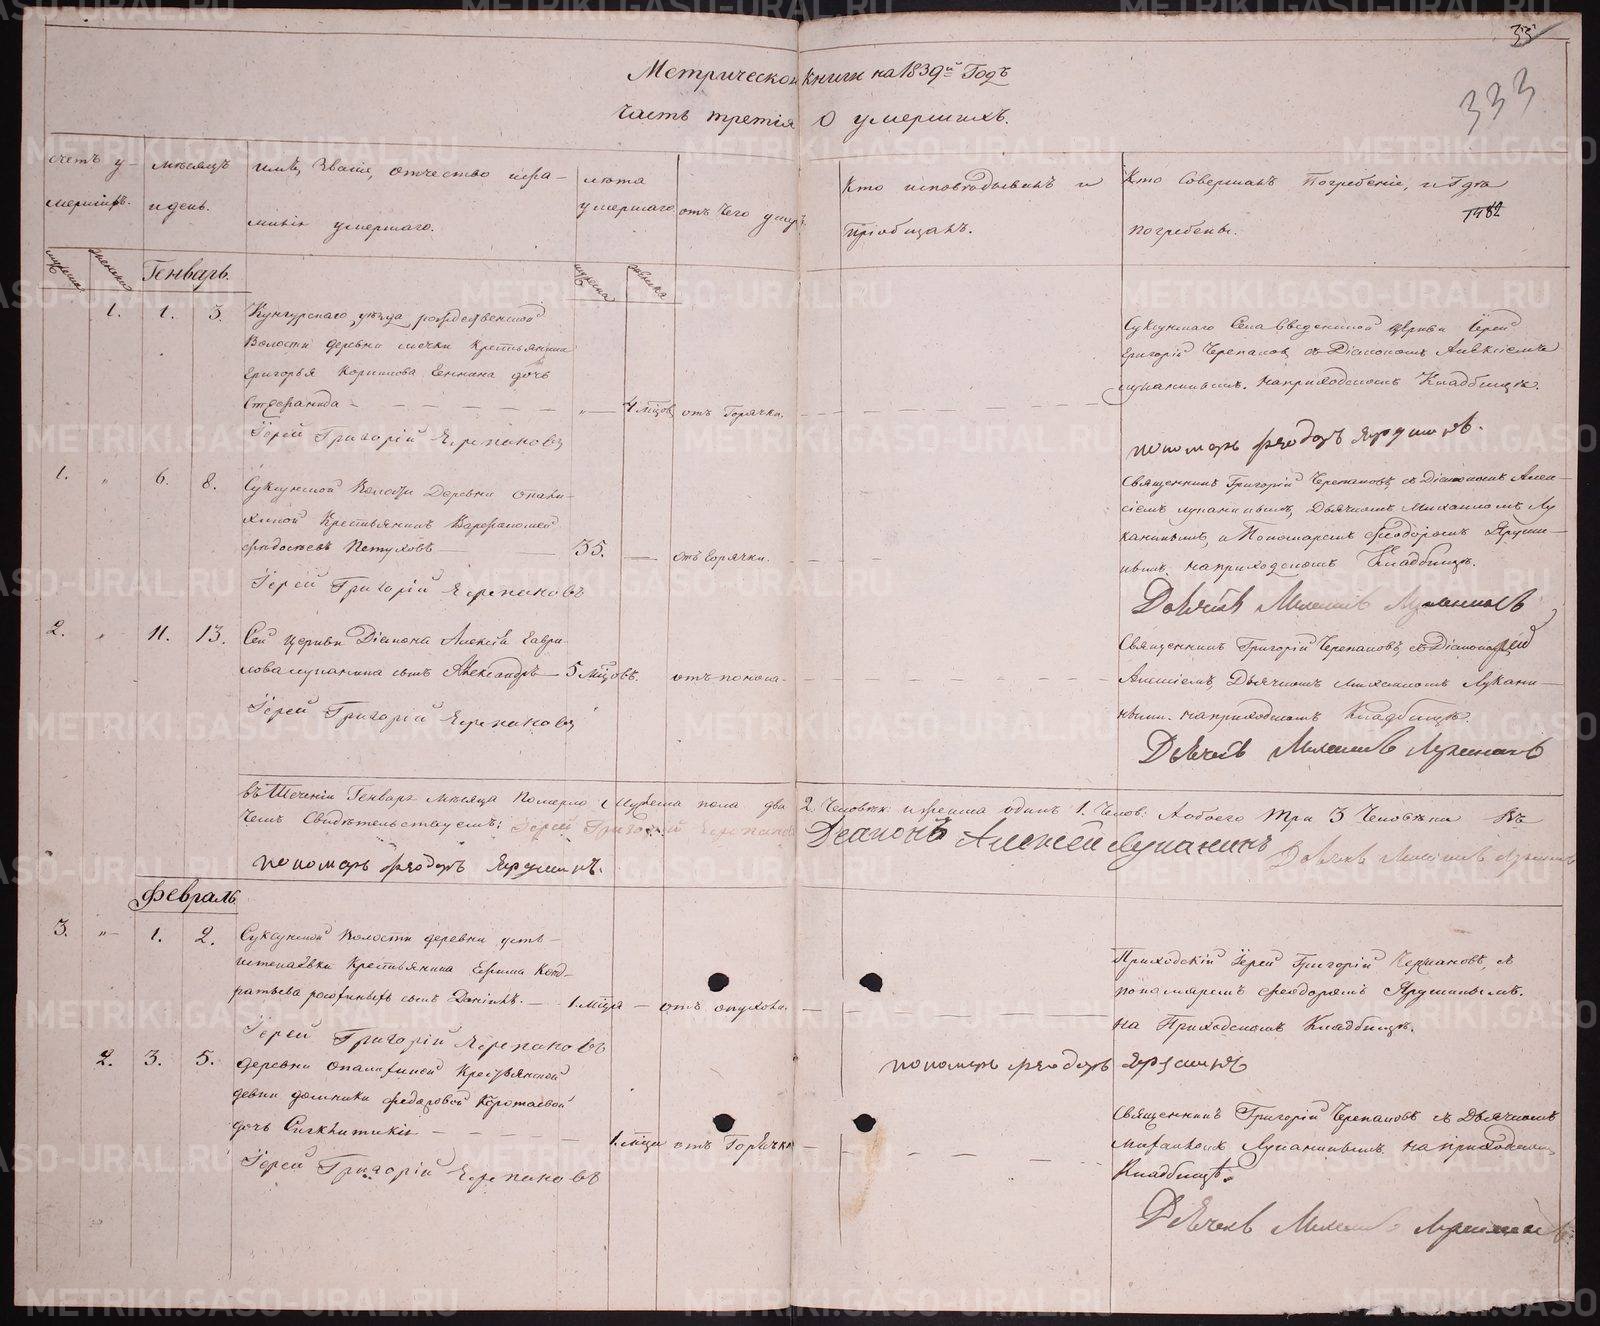 33
333
Метрической книги на 1839й Годъ
часть третія О умершихъ.
счетъ у-
мершихъ.
мѣсяцъ
и день.
имѣ, Званіе, отчество и фа-
миліи умершаго.
лѣта
умершаго
отъ чего умръ
Кто исповѣдывалъ и
пріобщалъ.
Кто Совершалъ Погребеніе, и Гдѣ
погребены.
1782
Генварь.
1. 1. 3.
Кунгурскаго уѣзда рождественской
Волости деревни крестьянина
Григорья дочь
Стефанида
4 мцов
отъ Горячки.
Іерей Григорій Черепановъ
Суксунскаго Села Введенской церкви Іерей
Григорій Черепанов, съ Діакономъ Алексіемъ
Луканинымъ. на приходскомъ Кладбищѣ.
пономарь Феодоръ Ярушинъ.
1. 6. 8.
Суксунской Волости Деревни опали-
хиной Крестьянинъ Варфоломей
Федосѣевъ Пѣтуховъ
35.
отъ Горячки.
Іерей Григорій Черепановъ
Священникъ Григорій Черепановъ, съ Діакономъ Алек-
сіемъ Луканинымъ, Дьячкомъ Михаиломъ Лу
канинымъ, и Пономаремъ Феодоромъ Яруши-
нымъ. на приходскомъ Кладбищѣ.
Дьячекъ Михаилъ Луканинъ
2. 11. 13.
Сей церкви Діакона Алексѣя Гаври-
лова Луканина сынъ Александръ
5 Мцовъ.
отъ поноса
Іерей Григорій Черепановъ
Священникъ Григорій Черепановъ, съ Діакономъ
Алексіемъ, Дьячкомъ Михаиломъ Лукани-
ными. на приходскомъ Кладбищѣ.
Дьячекъ Михаилъ Луканинъ
въ Теченіи Генваря мѣсяца померло Мужеска пола два 2 Человѣк: и женска одинъ 1. Челов: А обоего Три 3 Человѣка Въ
Чемъ Свидѣтельствуемъ: Іерей Григорій Черепановъ
Діаконъ Алексей Луканинъ
Дьячекъ Михаилъ Луканинъ
пономарь Феодоръ Ярушинъ.
Февраль
3. 1. 2.
Суксунской Волости деревни усть-
Крестьянина Ефима Конд-
ратьева сынъ
1. мца
отъ опухоли.
Іерей Григорій Черепановъ
Приходскій Іерей Григорій Черпановъ, съ
пономаремъ Феодоромъ Ярушинымъ.
на Приходскомъ Кладбищѣ.
пономарь Феодоръ Ярушинъ
2. 3. 5.
деревни опалихиной Крестьянской
девки Федоровой Коротаевой
дочь Синклитикія
1. мца
отъ Горячки
Іерей Григорій Черепановъ
Священникъ Григорій Черепановъ съ Дьячкомъ
Михаиломъ Луканинымъ. на приходском
Кладбищѣ.
Дьячекъ Михаилъ Луканинъ